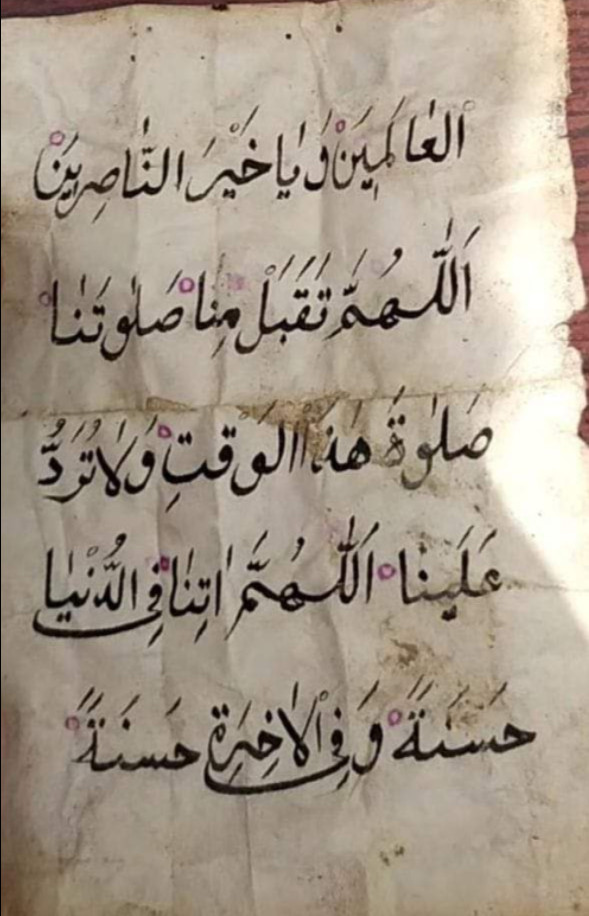 الْعٰالَمِيْنَ وَ يٰا خَيْرَ النّٰاصِرِيْنَ
اَللّٰهُمَّ تَقَبَّلْ مِنٰا صَلٰوتَنٰا
صَلٰوةَ هٰذَا الْوَقْتِ وَلٰا تُرَدُّ
عَلَيْنٰا اَللّٰهُمَّ اٰتِنٰا فِي الدُّنْيٰا
حَسَنَةً وَ فِي الْاٰخِرَةِ حَسَنَةً